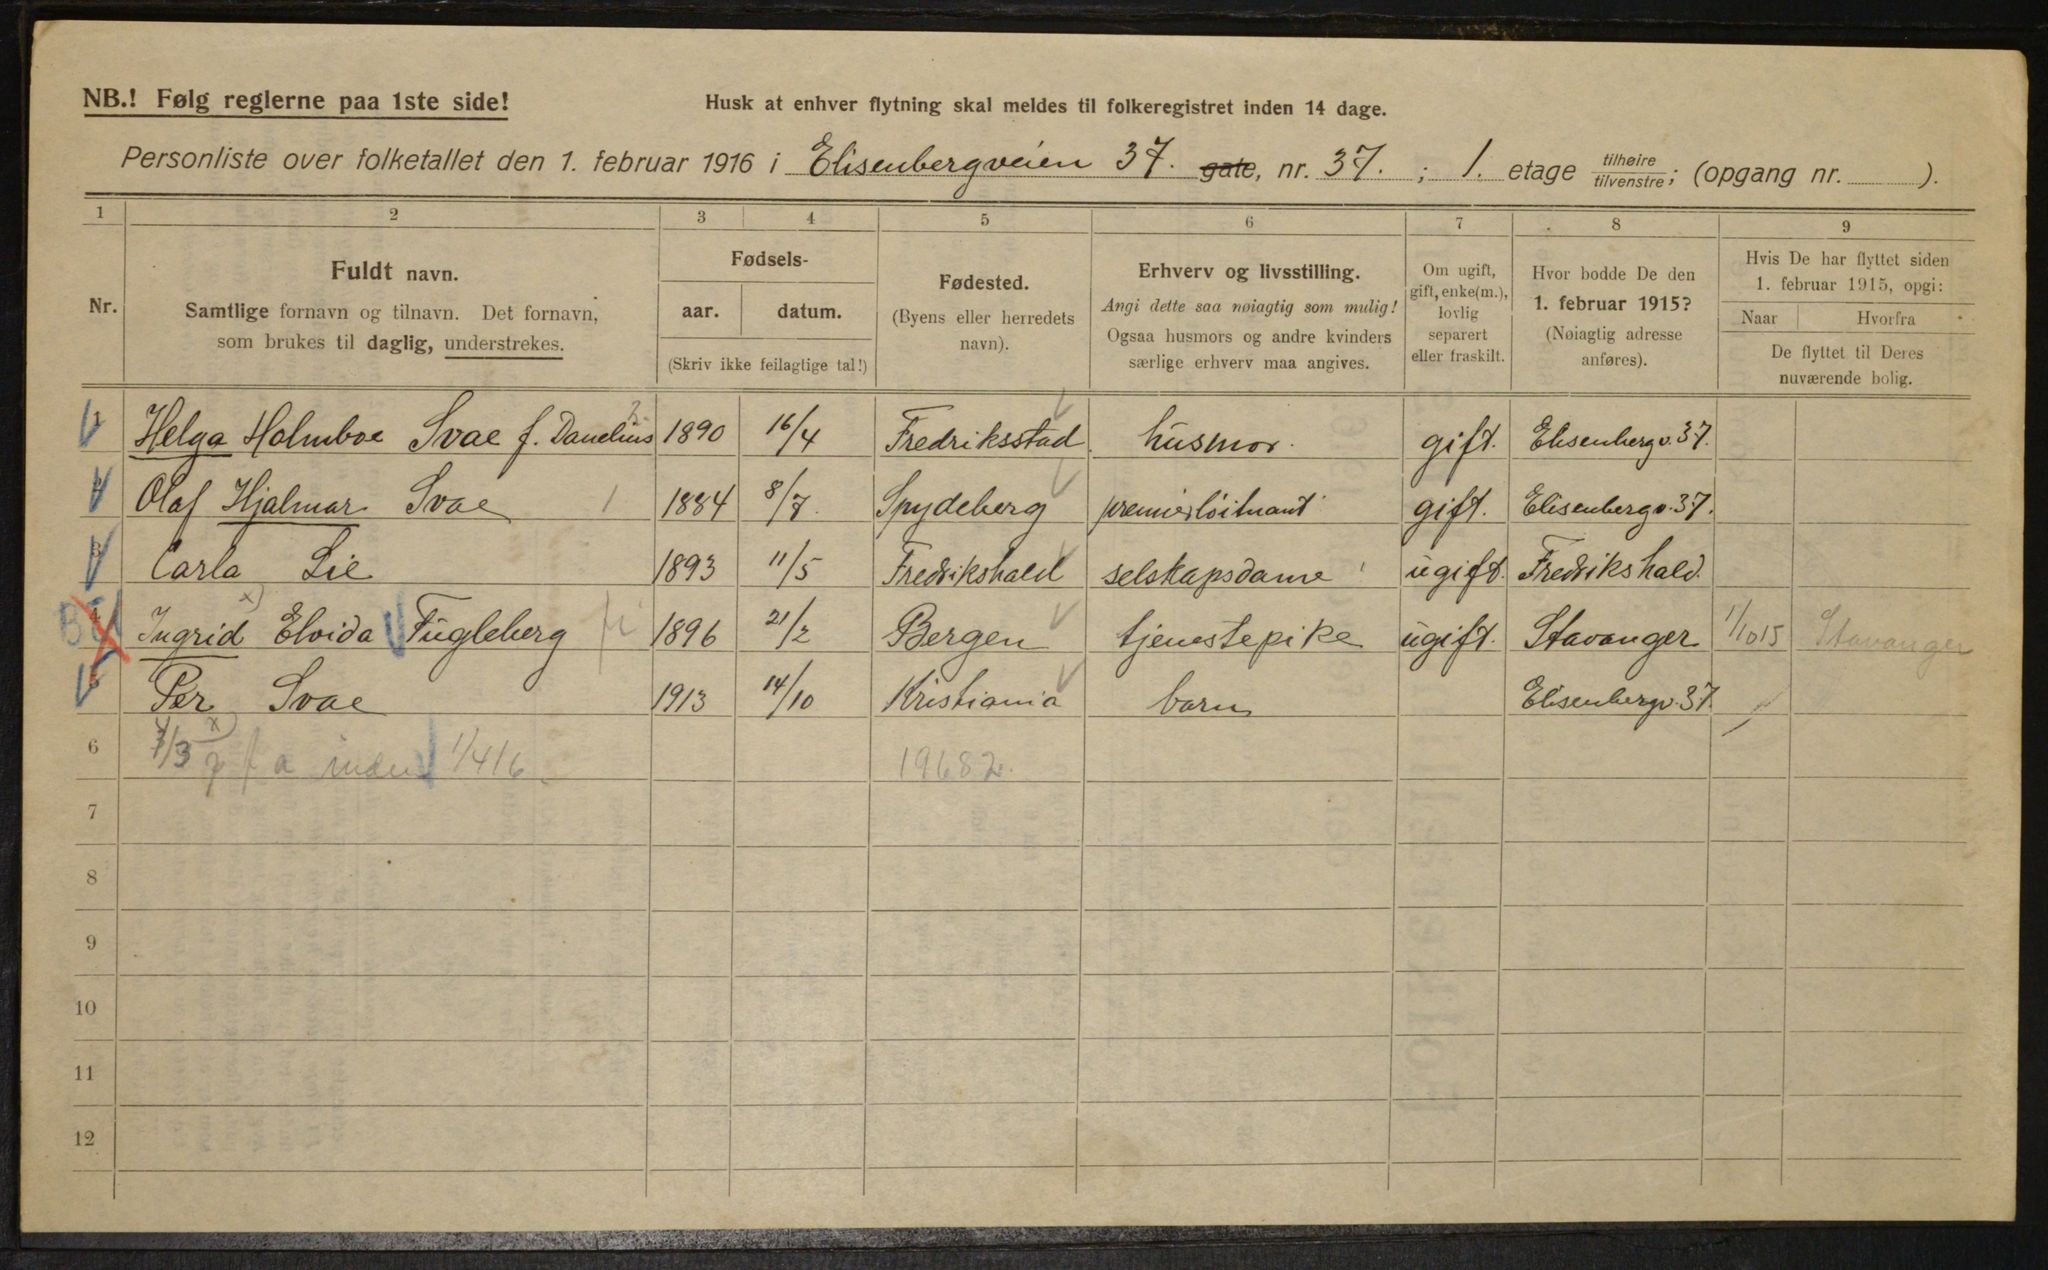 NB.! Følg reglerne paa 1ste side!
Husk at enhver flytning skal meldes til folkeregistret inden 14 dage.
Personliste over folketallet den 1. februar 1916 i Elisenbergveien 37. gate, nr. 37. ; 1. etage tilhøire tilvenstre; (opgang nr. ).
1 2 3 4 5 6 7 8 9
Nr.
Fuldt navn.
Samtlige fornavn og tilnavn. Det fornavn,
som brukes til daglig, understrekes.
Fødsels-
aar. datum.
(Skriv ikke feilagtige tal!)
Fødested.
(Byens eller herredets
navn).
Erhverv og livsstilling.
Angi dette saa nøiagtig som mulig!
Ogsaa husmors og andre kvinders
særlige erhverv maa angives.
Om ugift,
gift, enke(m.),
lovlig
separert
eller fraskilt.
Hvor bodde De den
1. februar 1915?
(Nøiagtig adresse
anføres).
Hvis De har flyttet siden
1. februar 1915, opgi:
Naar Hvorfra
De flyttet til Deres
nuværende bolig.
1 Helga Holmboe Svae f. Danelius 1890 16/4 Fredriksstad husmor. gift. Elisenbergv. 37.
2 Olaf Hjalmar Svae 1884 8/7. Spydeberg premierløitnant gift. Elisenbergv. 37.
3 Carla Lie 1893 11/5 Fredrikshald selskapsdame ugift. Fredrikshald.
4 Ingrid x) Elvida Fugleberg 1896 21/2 Bergen tjenestepike ugift. Stavanger 1/10 15 Stavanger
5 Per Svae 1913 14/10 Kristiania barn Elisenbergv. 37.
6 x) 7/3 a inden 1/4 16 19682.
7
8
9
10
11
12